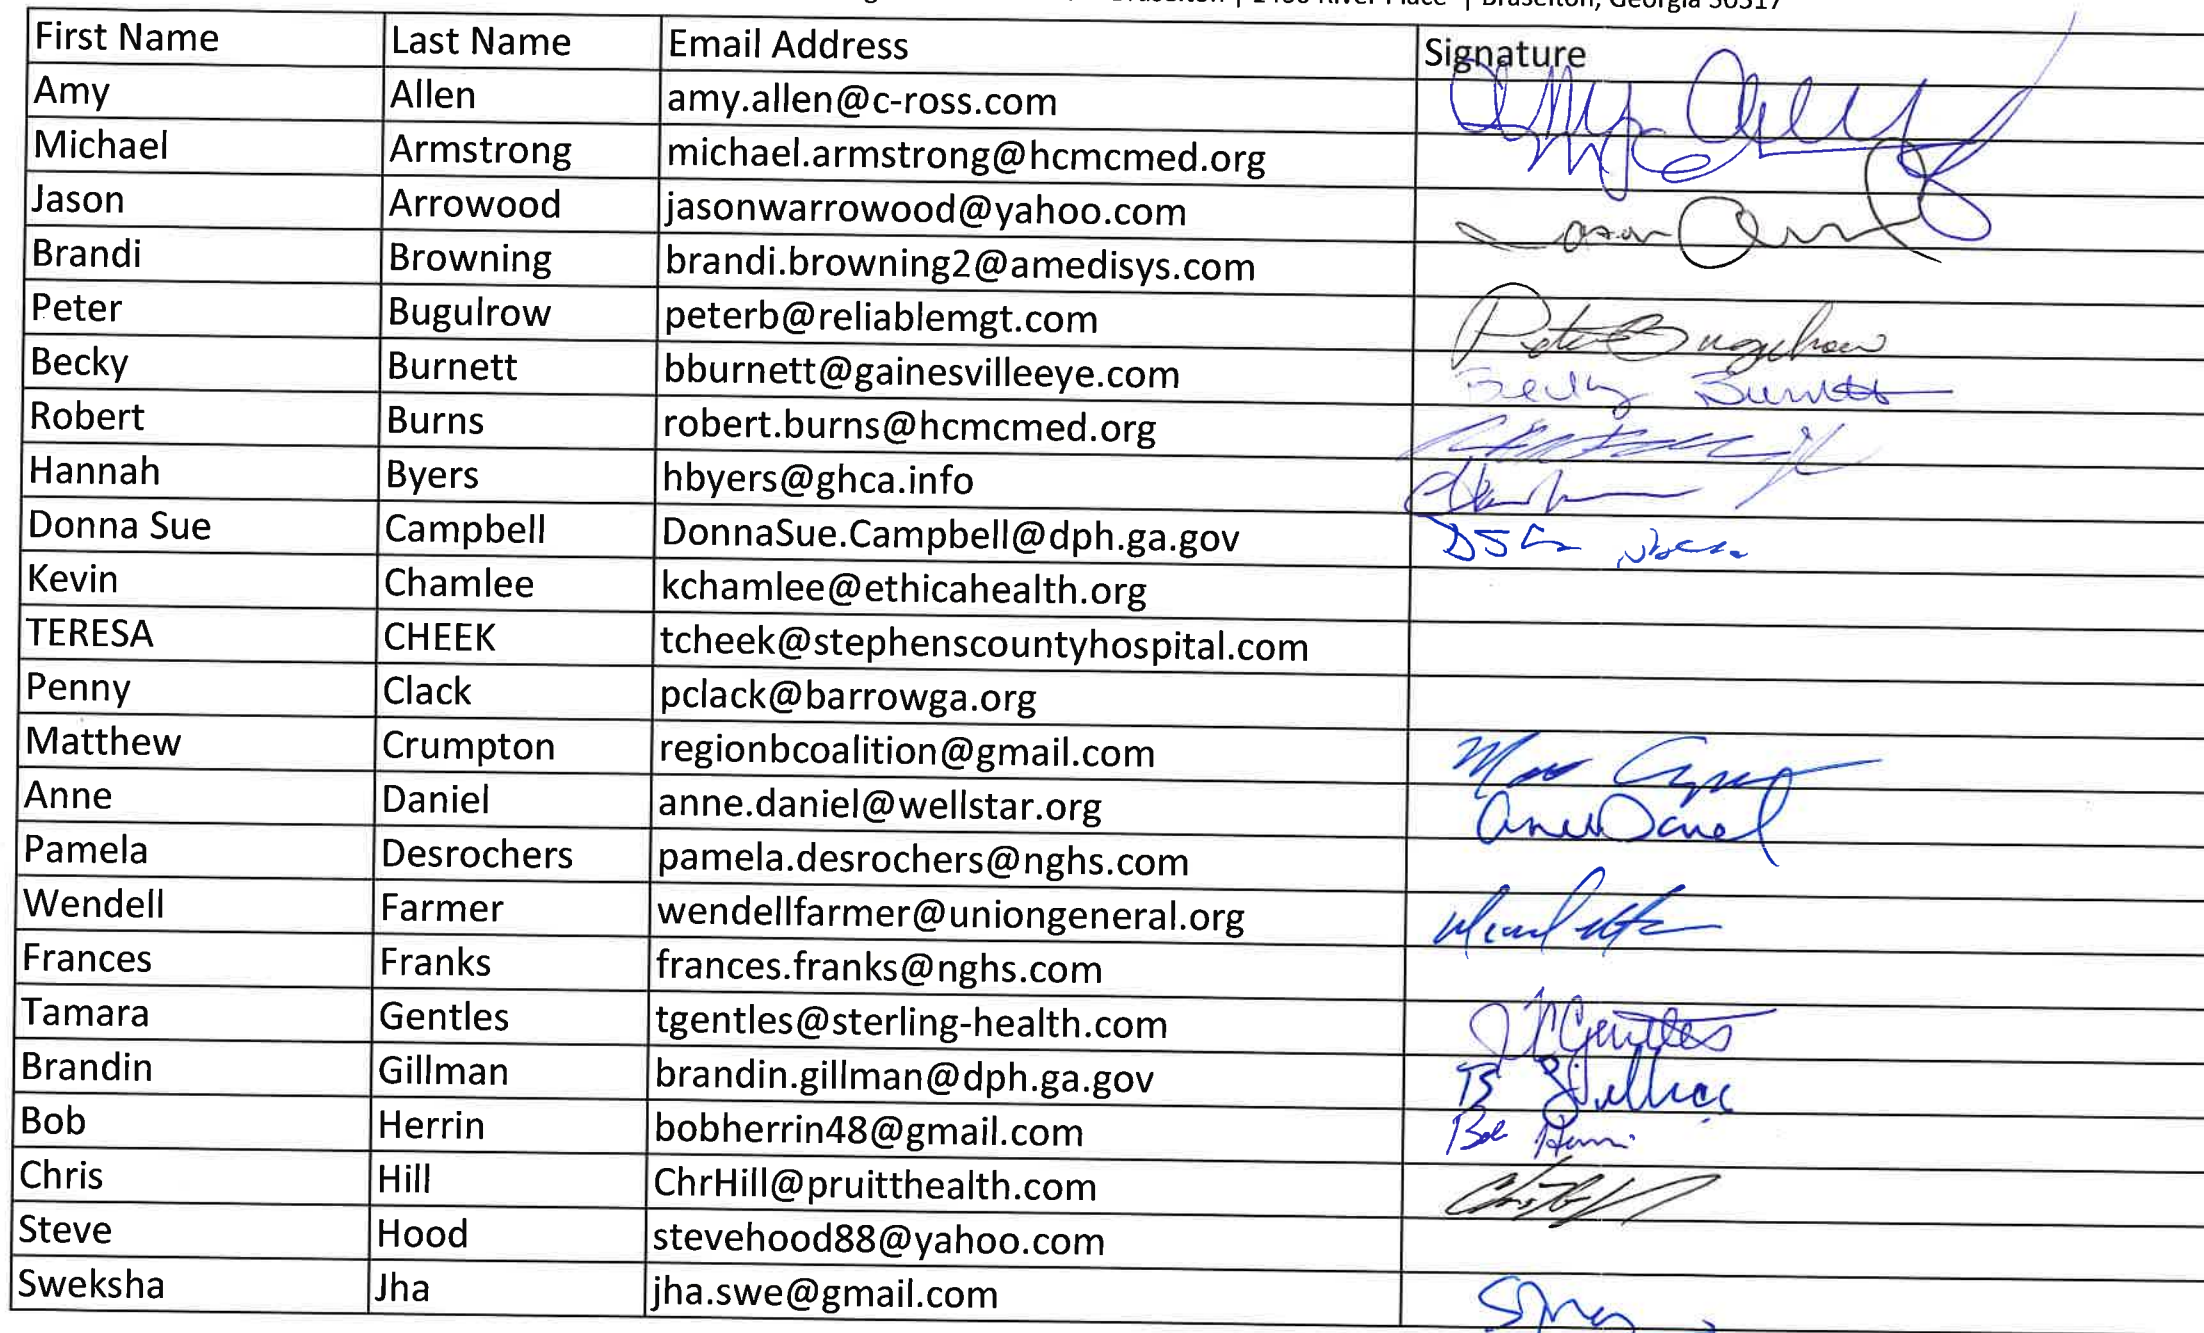 Braselton | 2400 River Place | Braselton, Georgia 30517
First Name Last Name Email Address Signature
Amy Allen amy.allen@c-ross.com
Michael Armstrong michael.armstrong@hcmcmed.org
Jason Arrowood jasonwarrowood@yahoo.com
Brandi Browning brandi.browning2@amedisys.com
Peter Bugulrow peterb@reliablemgt.com Peter Bugulrow
Becky Burnett bburnett@gainesvilleeye.com Becky Burnett
Robert Burns robert.burns@hcmcmed.org
Hannah Byers hbyers@ghca.info
Donna Sue Campbell DonnaSue.Campbell@dph.ga.gov
Kevin Chamlee kchamlee@ethicahealth.org
TERESA CHEEK tcheek@stephenscountyhospital.com
Penny Clack pclack@barrowga.org
Matthew Crumpton regionbcoalition@gmail.com
Anne Daniel anne.daniel@wellstar.org Anne Daniel
Pamela Desrochers pamela.desrochers@nghs.com
Wendell Farmer wendellfarmer@uniongeneral.org
Frances Franks frances.franks@nghs.com
Tamara Gentles tgentles@sterling-health.com Gentles
Brandin Gillman brandin.gillman@dph.ga.gov
Bob Herrin bobherrin48@gmail.com Bob
Chris Hill ChrHill@pruitthealth.com
Steve Hood stevehood88@yahoo.com
Sweksha Jha jha.swe@gmail.com